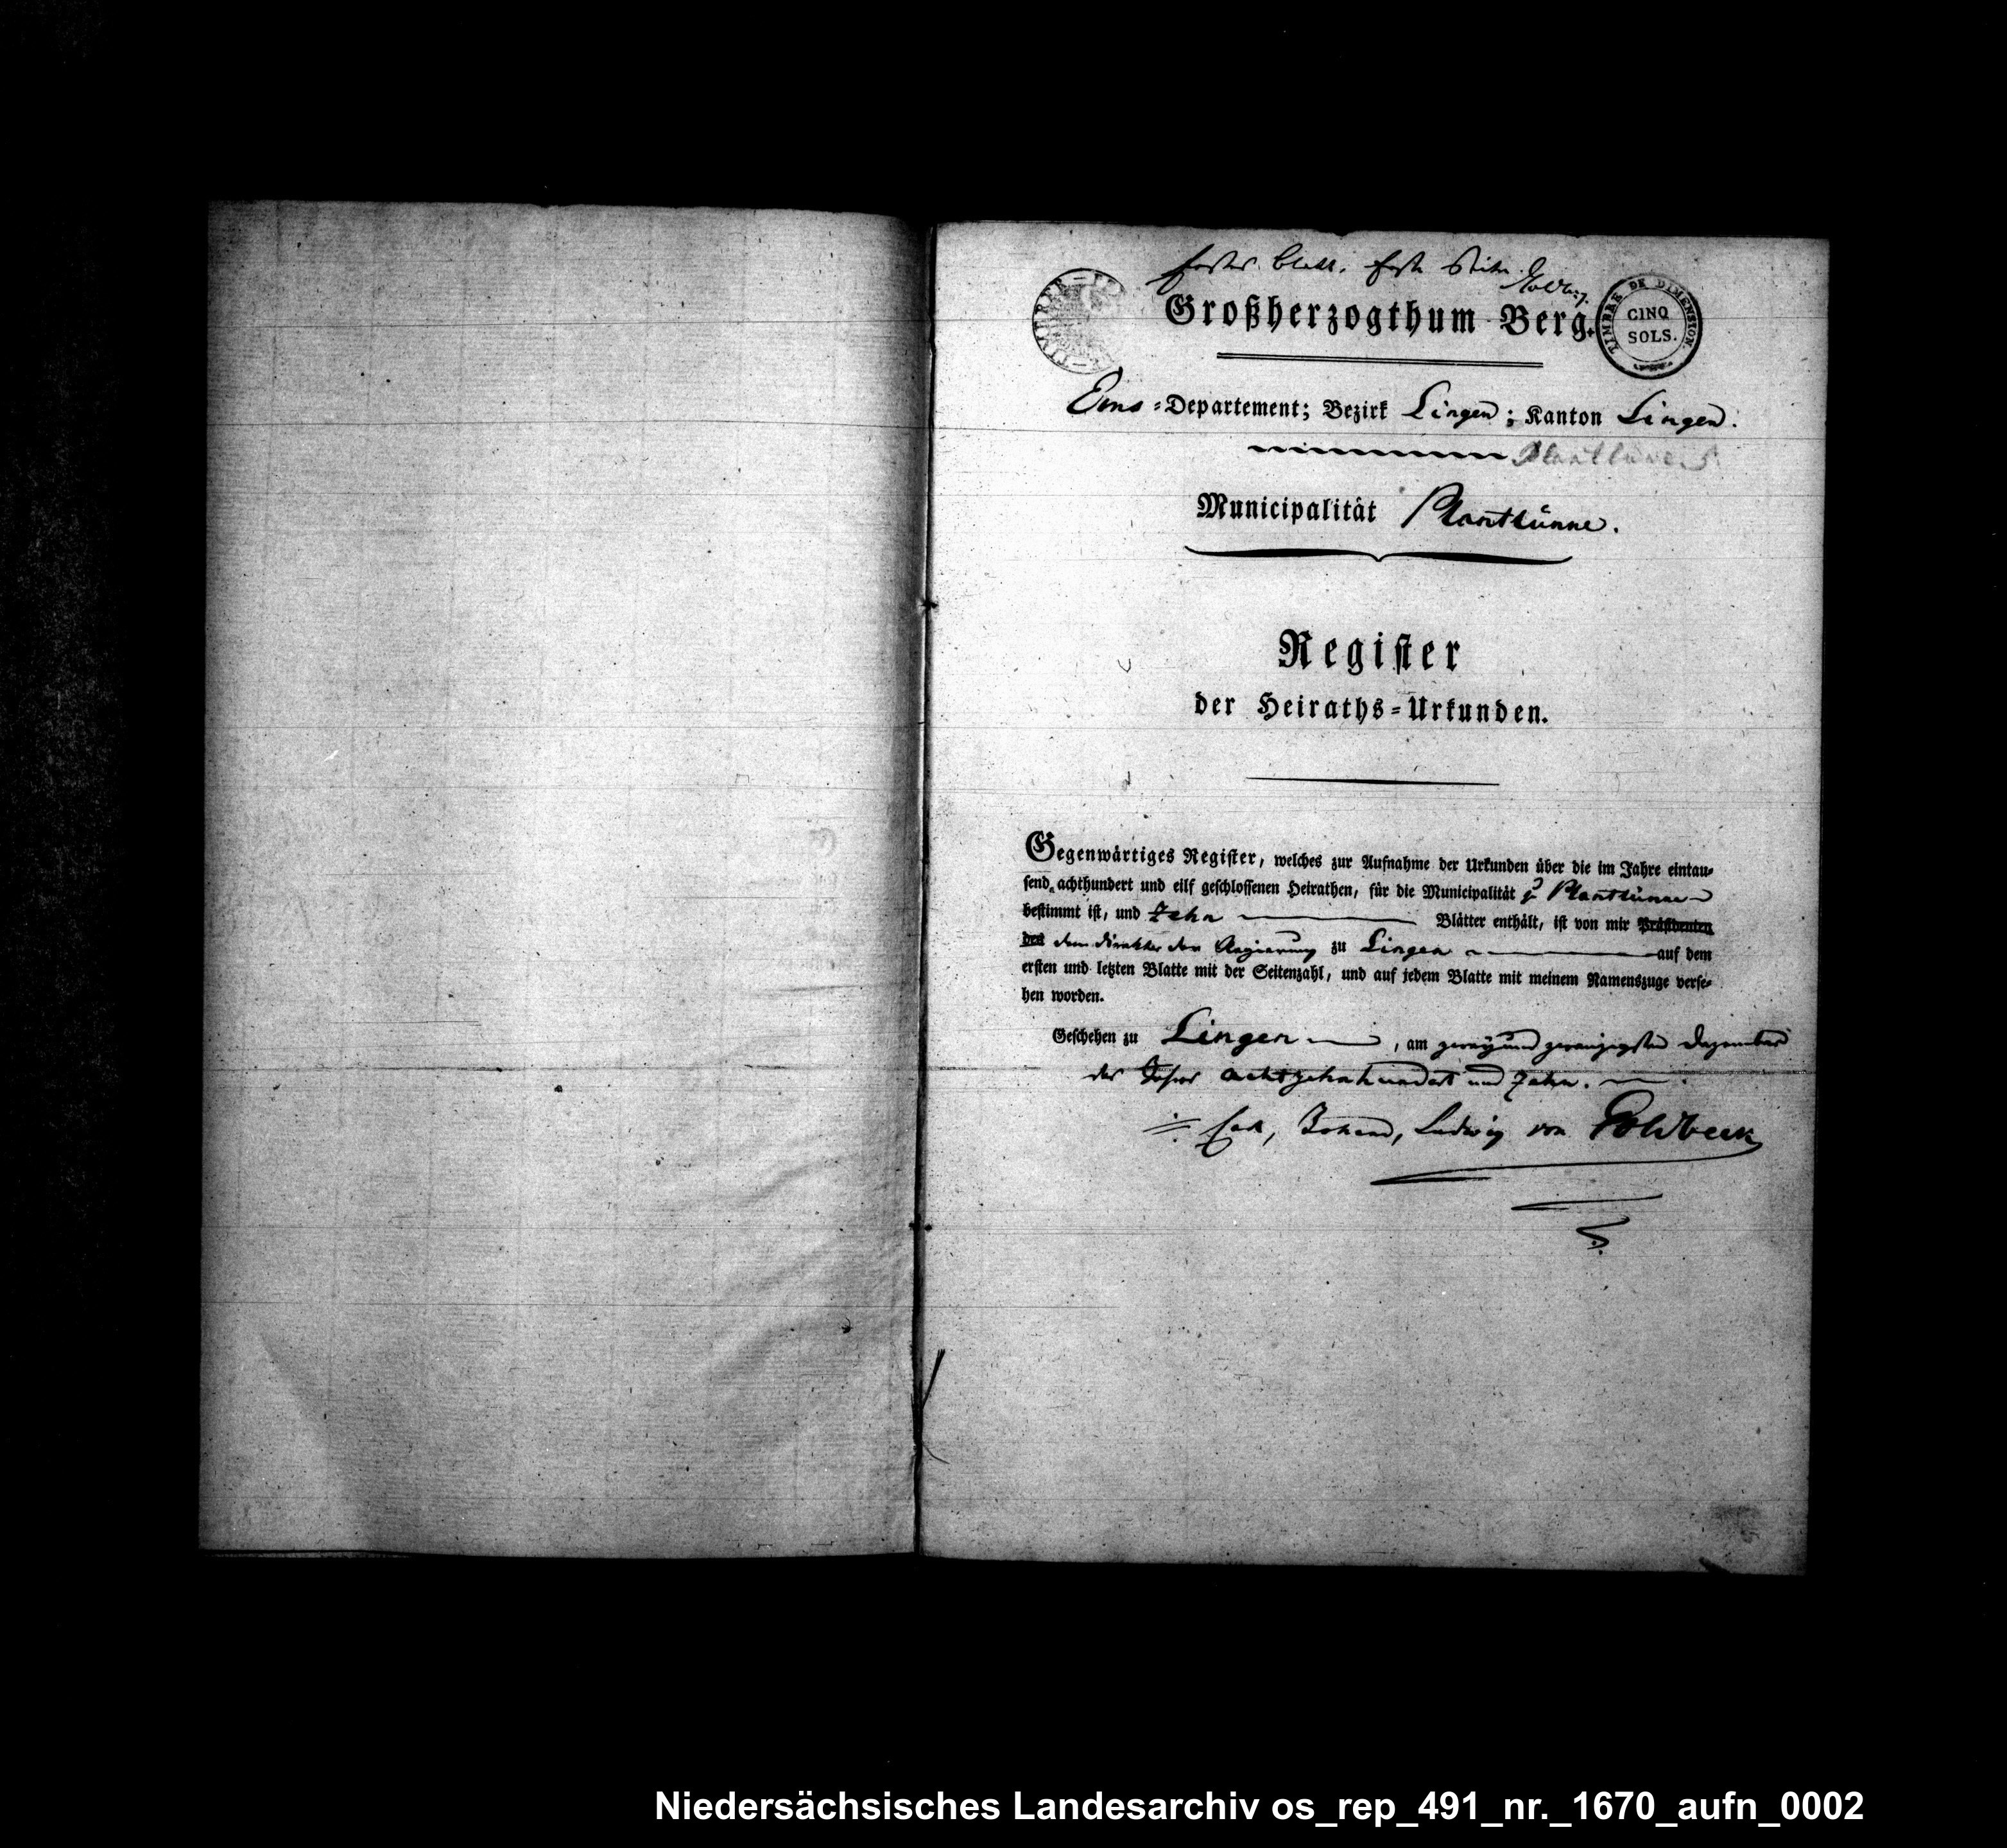 Erstes Blatt. Erste Seite.
Goldbeck
Großherzogthum Berg.
TIMBRE DE DIMENSION.
CINQ
SOLS.
Ems=Departement; Bezirk Lingen; Kanton Lingen.
Plantlünne
Municipalität Plantlünne.
Register
der Heiraths=Urkunden.
Gegenwärtiges Register, welches zur Aufnahme der Urkunden über die im Jahre eintau=
send achthundert und eilf geschlossenen Heirathen, für die Municipalität zu Plantlünne
bestimmt ist, und Zehn Blätter enthält, ist von mir Präsidenten
des dem Direktor der Regierung zu Lingen auf dem
ersten und letzten Blatte mit der Seitenzahl, und auf jedem Blatte mit meinem Namenszuge verse=
hen worden.
Geschehen zu Lingen, am zwey und zwanzigsten Dezember
des Jahres achtzehnhundert und Zehn.
Carl, Ludwig von Goldbeck
Niedersächsisches Landesarchiv os_rep_491_nr._1670_aufn_0002